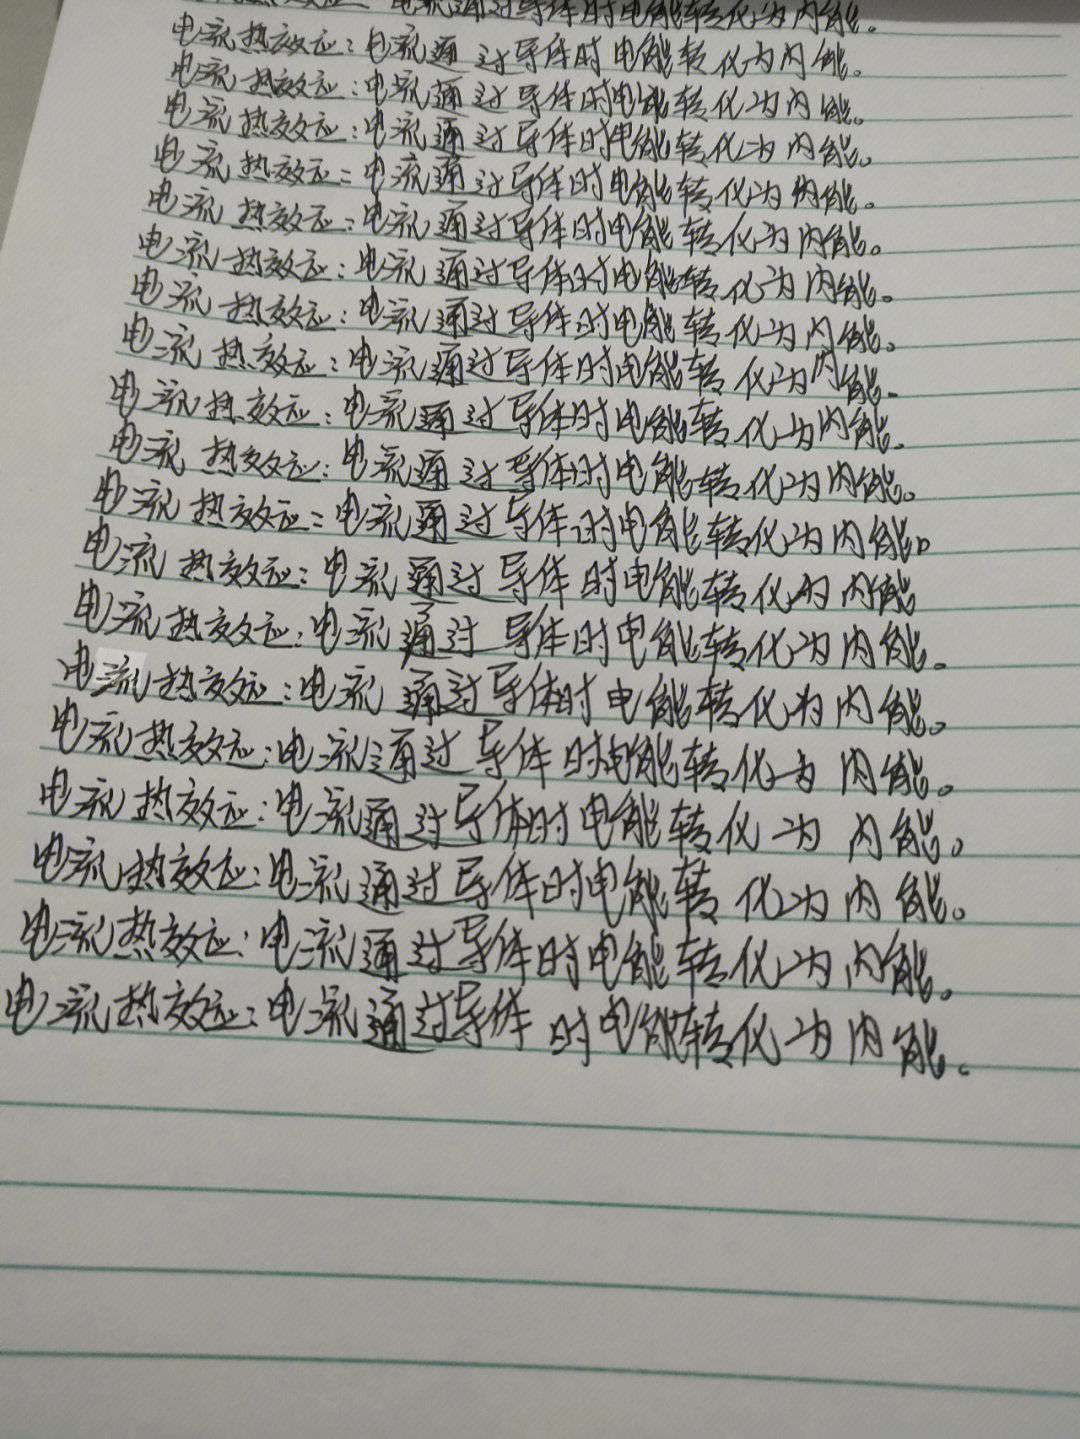 效应 电流通过导体时电能转化为内能。
电流热效应：电流通过导体时电能转化为内能。
电流热效应：电流通过导体时电能转化为内能。
电流热效应：电流通过导体时电能转化为内能。
电流热效应：电流通过导体时电能转化为内能。
电流热效应：电流通过导体时电能转化为内能。
电流热效应：电流通过导体时电能转化为内能。
电流热效应：电流通过导体时电能转化为内能。
电流热效应：电流通过导体时电能转化为内能。
电流热效应：电流通过导体时电能转化为内能。
电流热效应：电流通过导体时电能转化为内能。
电流热效应：电流通过导体时电能转化为内能。
电流热效应：电流通过导体时电能转化为内能
电流热效应：电流通过导体时电能转化为内能。
电流热效应：电流通过导体时电能转化为内能。
电流热效应：电流通过导体时电能转化为内能。
电流热效应：电流通过导体时电能转化为内能。
电流热效应：电流通过导体时电能转化为内能。
电流热效应：电流通过导体时电能转化为内能。
电流热效应：电流通过导体时电能转化为内能。